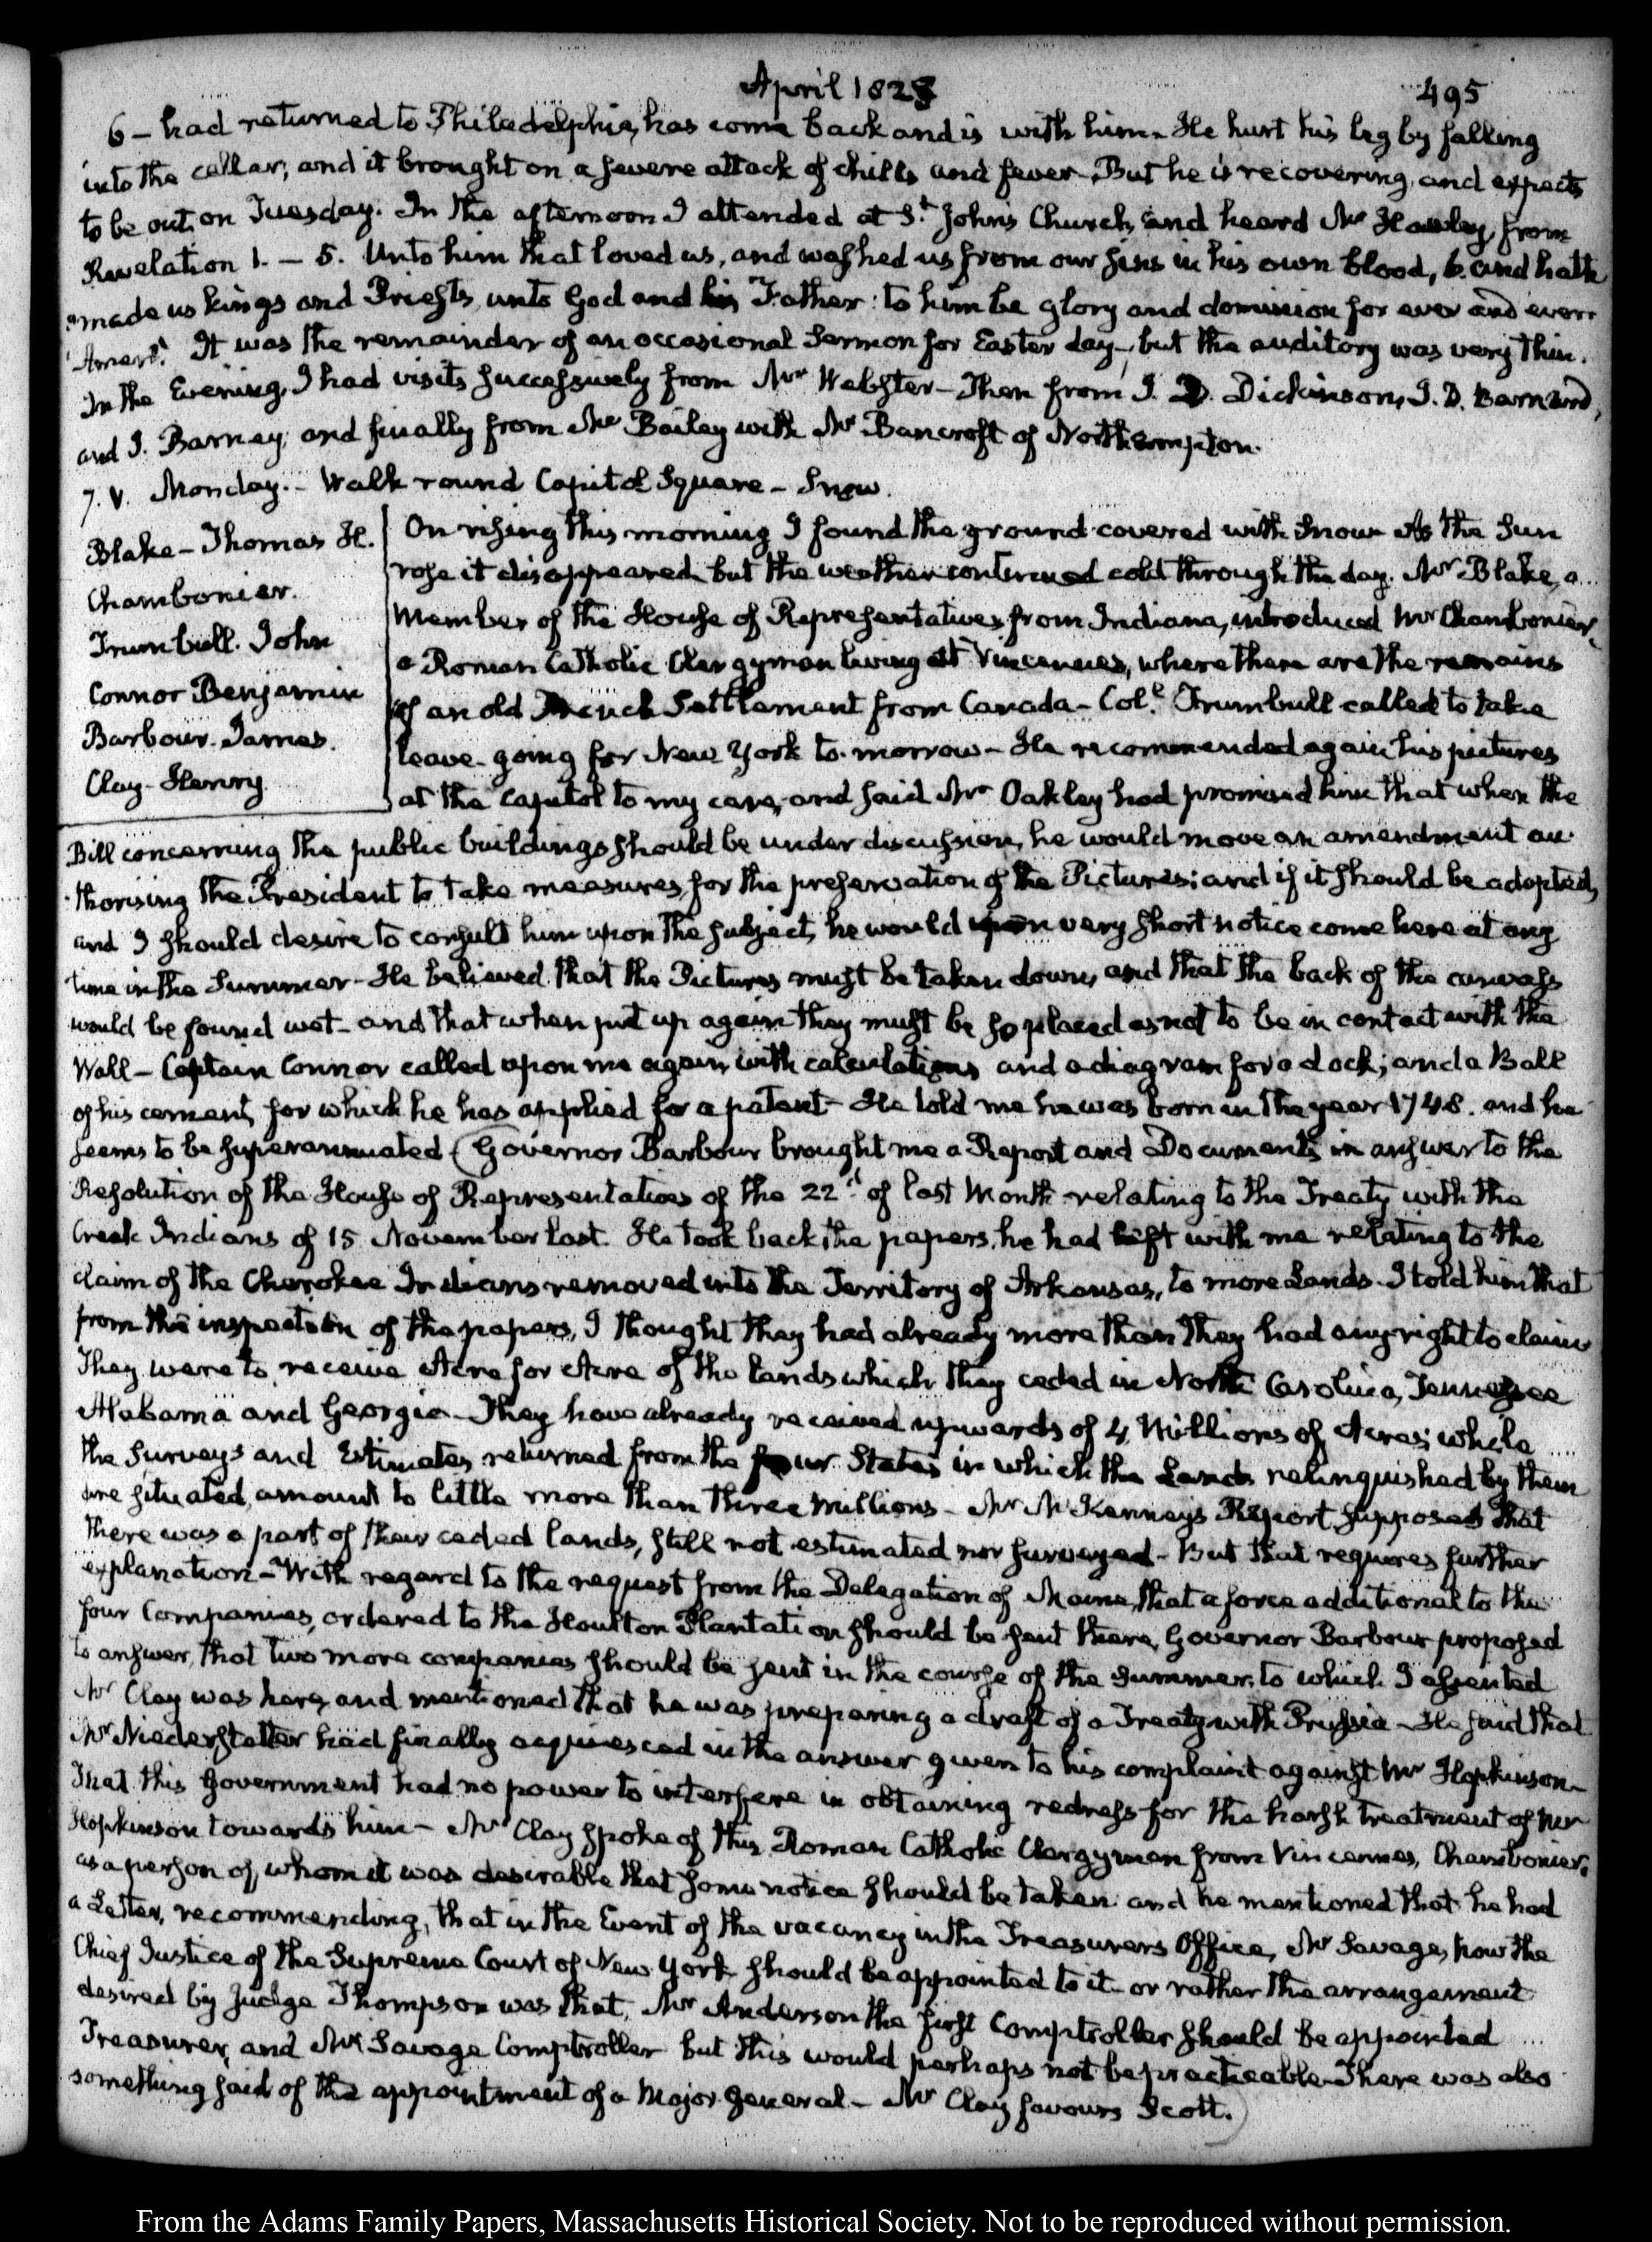 April 1828
495
6 - had returned to Philadelphia, has come back and is with him. He hurt his leg by falling
into the cellar, and it brought on a severe attack of chills and fever. But he is recovering, and expects
to be out on Tuesday. In the afternoon I attended at St. Johns Church, and heard Mr Hawley, from
Revelation 1. - 5. Unto him that loved us, and washed us from our sins in his own blood, 6. and hath
"made us kings and Priests unto God and his Father: to him be glory and dominion for ever and ever.
'Amen." It was the remainder of an occasional Sermon for Easter day, but the auditory was very thin.
In the Evening, I had visits successively from Mr Webster - Then from J. D. Dickinson, J. D. Barnard,
and J. Barney, and finally from Mr Bailey with Mr Bancroft of Northampton.
7. V. Monday. - Walk round Capitol Square - Snow.
Blake - Thomas H.
Chambonier.
Trumbull. John
Connor Benjamin
Barbour. James.
Clay - Henry
On rising this morning I found the ground covered with snow. As the Sun
rose it disappeared, but the weather continued cold through the day. Mr Blake, a
Member of the House of Representatives from Indiana, introduced Mr Chambonier,
a Roman Catholic Clergyman living at Vincennes, where there are the remains
of an old French Settlement from Canada - Col. Trumbull called to take
leave - going for New York to-morrow - He recommended again his pictures
at the Capitol to my care, and said Mr Oakley had promised him that when the
Bill concerning the public buildings should be under discussion, he would move an amendment au-
thorising the President to take measures for the preservation of the Pictures; and if it should be adopted,
and I should desire to consult him upon the subject, he would upon very short notice come here at any
time in the Summer - He believed that the Pictures must be taken down, and that the back of the canvass
would be found wet - and that when put up again they must be so placed as not to be in contact with the
Wall - Captain Connor called upon me again, with calculations and a diagram for a dock; and a Ball
of his cement, for which he has applied for a patent - He told me he was born in the year 1748. and he
seems to be superannuated (Governor Barbour brought me a Report and Documents in answer to the
Resolution of the House of Representatives of the 22d of last Month relating to the Treaty with the
Creek Indians of 15 November last. He took back the papers, he had left with me relating to the
claim of the Cherokee Indians removed into the Territory of Arkansas, to more Lands. I told him that
from the inspection of the papers, I thought they had already more than they had any right to claim
They were to receive Acre for Acre of the lands which they ceded in North Carolina, Tennessee
Alabama and Georgia - They have already received upwards of 4 Millions of Acres; while
the Surveys and Estimates returned from the four States in which the Lands relinquished by them
are situated, amount to little more than three millions - Mr McKenneys Report supposes that
there was a part of their ceded lands, still not estimated nor surveyed - But that requires further
explanation - With regard to the request from the Delegation of Maine, that a force additional to the
four Companies, ordered to the Houlton Plantation should be sent there, Governor Barbour proposed
to answer, that two more companies should be sent in the course of the Summer, to which I assented
Mr Clay was here, and mentioned that he was preparing a draft of a Treaty with Prussia - He said that
Mr Niederstetter had finally acquiesced in the answer given to his complaint against Mr Hopkinson -
That this Government had no power to interfere in obtaining redress for the harsh treatment of Mr
Hopkinson towards him - Mr Clay spoke of this Roman Catholic Clergyman from Vincennes, Chambonier,
as a person of whom it was desirable that some notice should be taken and he mentioned that he had
a Letter, recommending, that in the Event of the vacancy in the Treasurers Office, Mr Savage, now the
Chief Justice of the Supreme Court of New York should be appointed to it - or rather the arrangement
desired by Judge Thompson was that, Mr Anderson the first Comptroller should be appointed
Treasurer, and Mr Savage Comptroller but this would perhaps not be practicable. There was also
something said of the appointment of a Major General - Mr Clay favours Scott.)
From the Adams Family Papers, Massachusetts Historical Society. Not to be reproduced without permission.